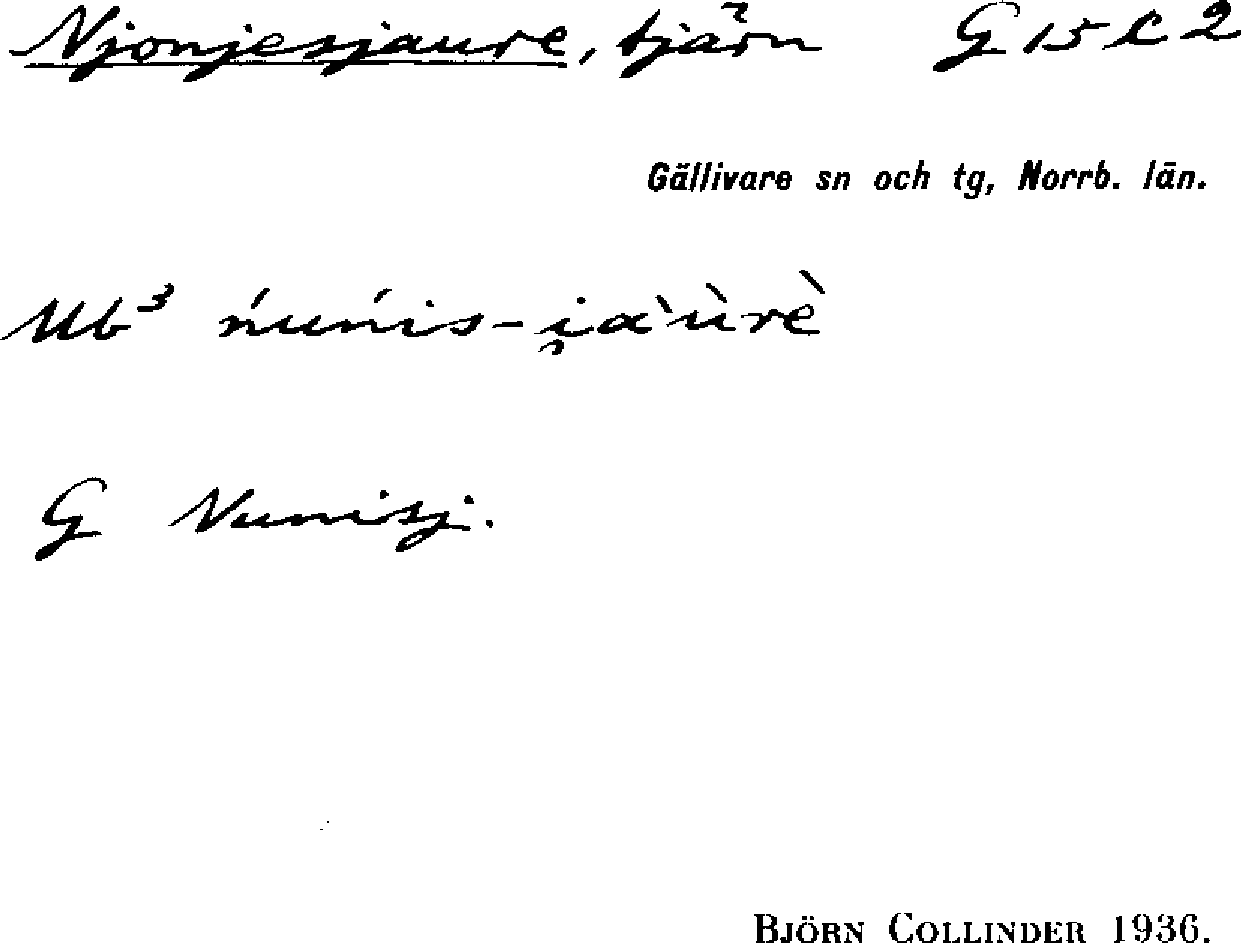 Njonjesjaure, tjärn G 15 k 2
Gällivare sn och tg, Norrb. län.
Ub³ ńuńis-i̯ɑ̀ùrè
G Nunisj.
BJÖRN COLLINDER 1936.